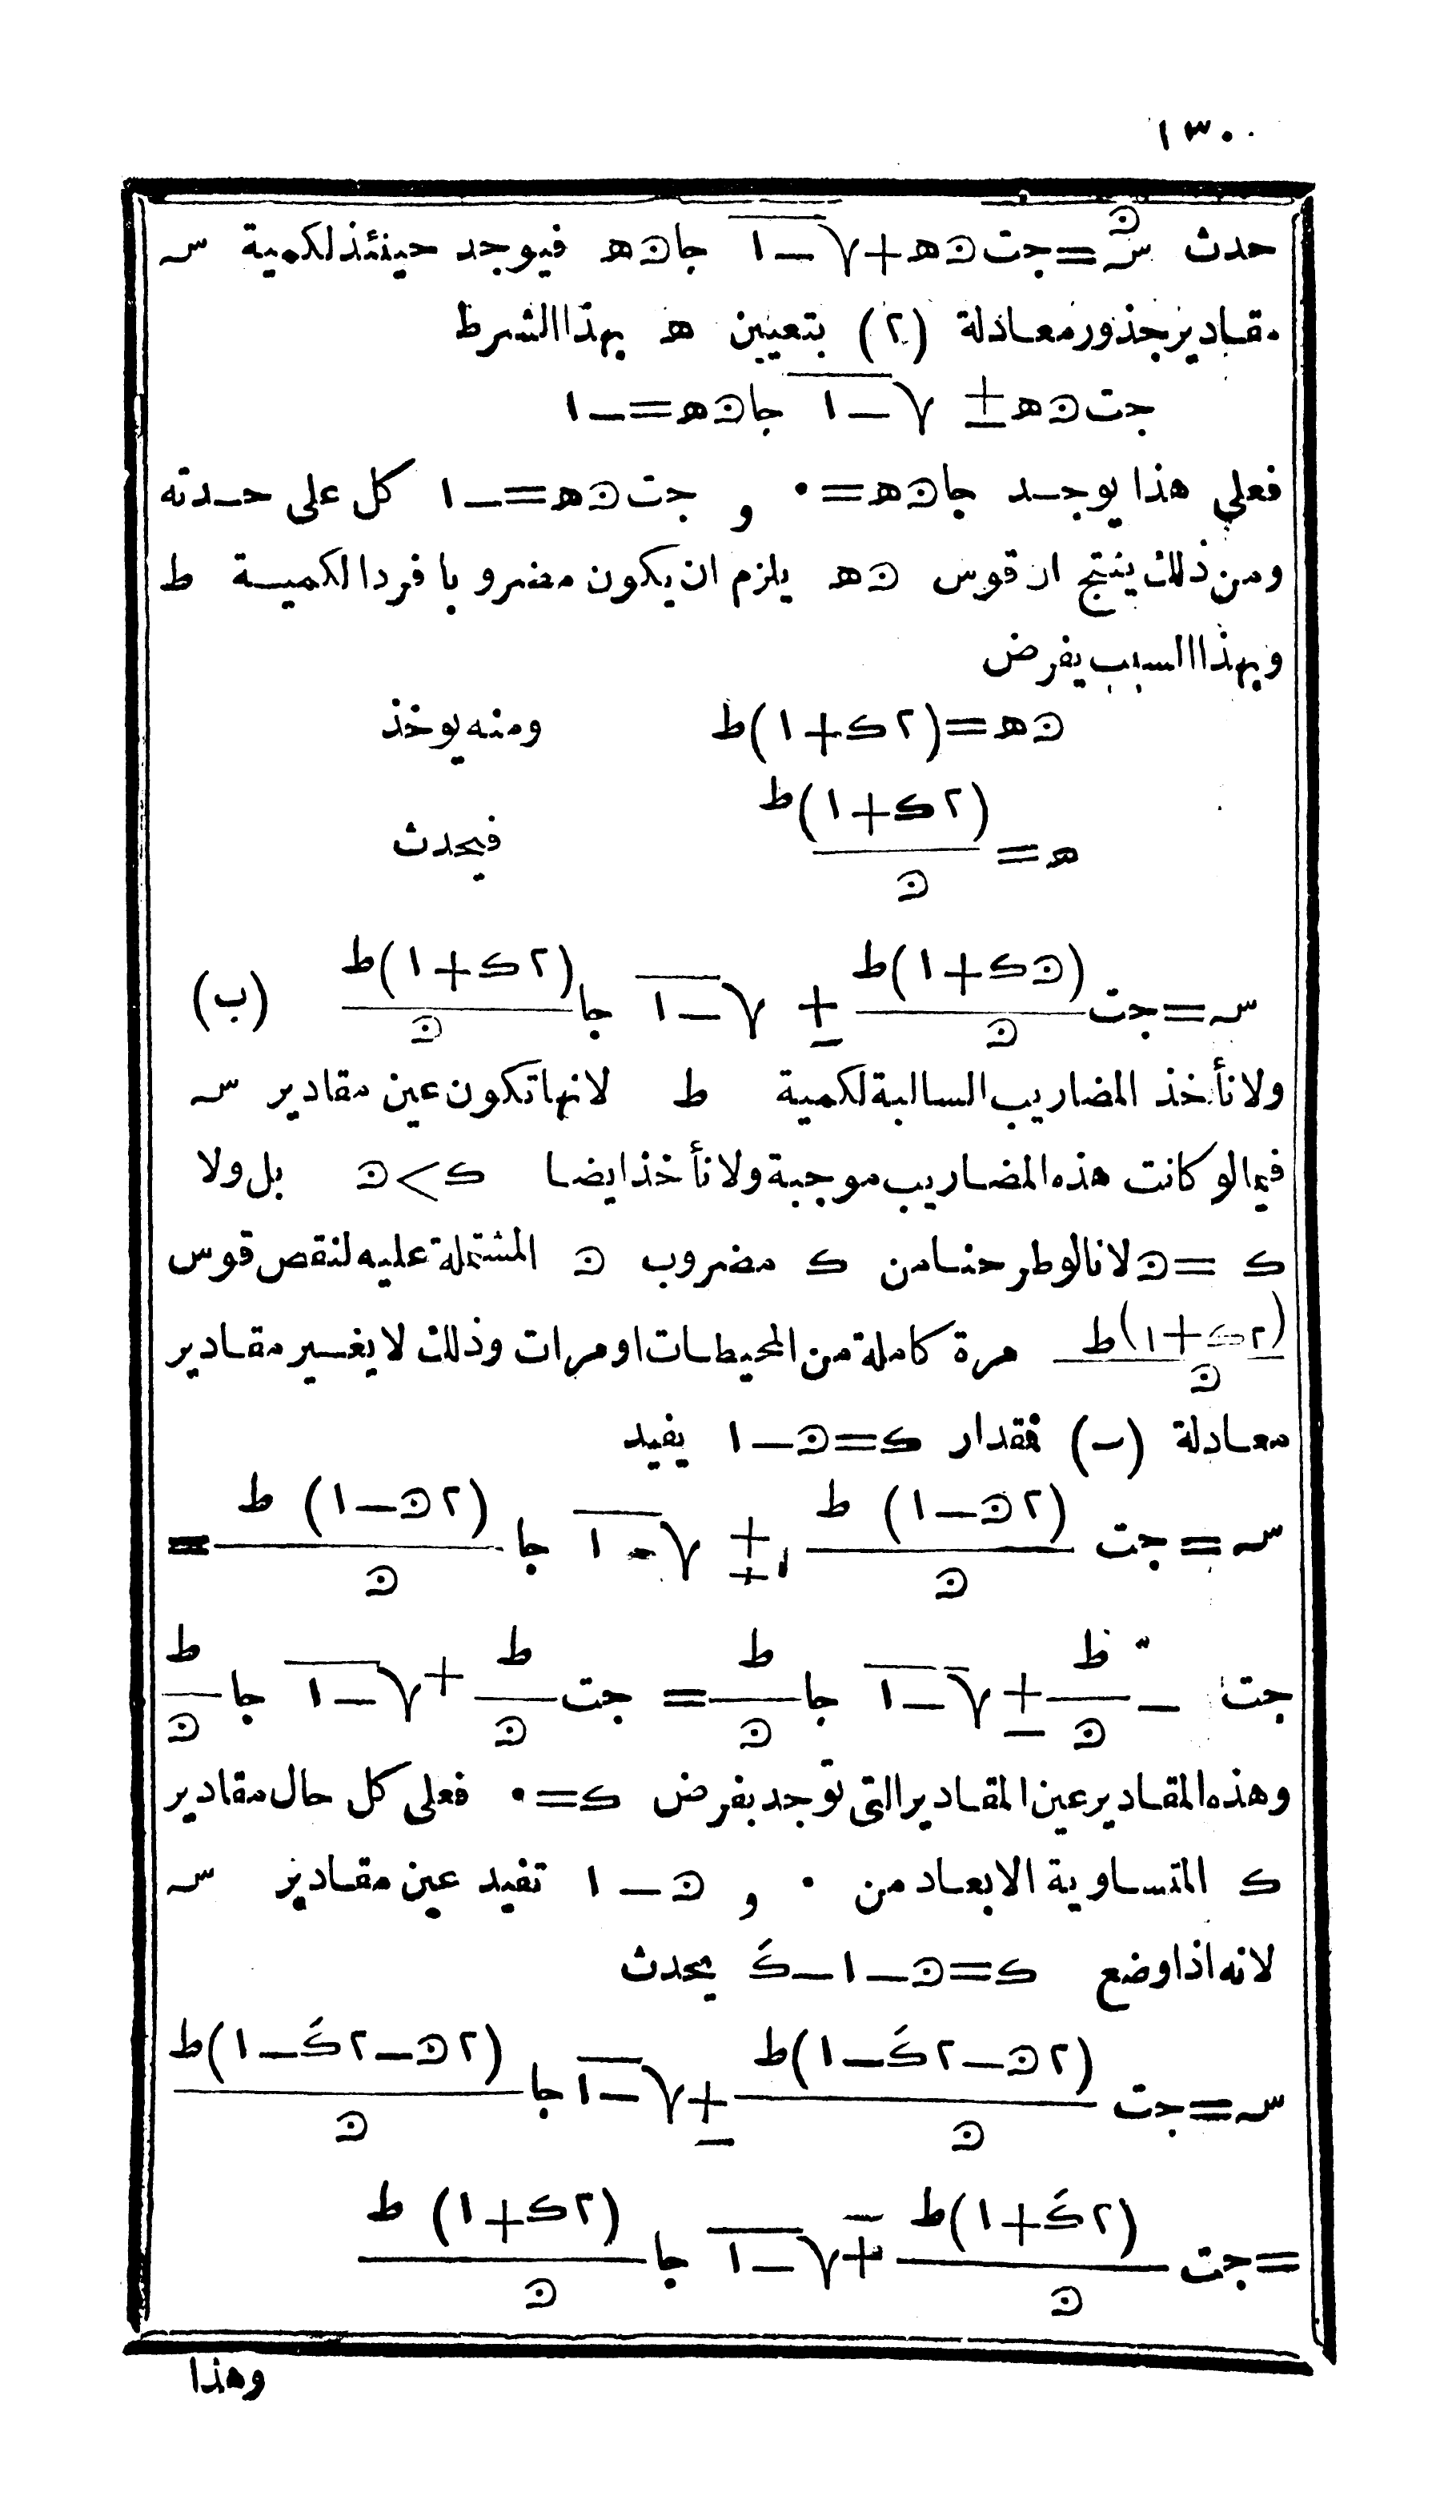 ١٣٠
حدث سـ^ن = جت ن ھ + √−١ جا ن ھ فيوجد حينئذ لكمية سـ
مقادير جذور معادلة (٢) بتعيين ھ بهذا الشرط
جت ن ھ ± √−١ جا ن ھ = −١
فعلى هذا يوجد جا ن ھ = ٠ و جت ن ھ = −١ كل على حدته
ومن ذلك ينتج ان قوس ن ھ يلزم ان يكون مضروبا فردا لكمية ط
وبهذا السبب يفرض
ن ھ = (٢ك+١)ط ومنه يوخذ
ھ = (٢ك+١)ط / ن فيحدث
سـ = جت (ن ك+١)ط / ن ± √−١ جا (٢ك+١)ط / ن (ب)
ولا نأخذ المضاريب السالبة لكمية ط لانها تكون عين مقادير سـ
فيما لو كانت هذه المضاريب موجبة ولا نأخذ ايضا ك > ن بل ولا
ك = ن لانا لو طرحنا من ك مضروب ن المشتملة عليه لنقص قوس
(٢ك+١)ط / ن مرة كاملة من المحيطات او مرات وذلك لا يغير مقادير
معادلة (ب) فمقدار ك = ن−١ يفيد
سـ = جت (٢ن−١)ط / ن ± √−١ جا (٢ن−١)ط / ن =
جت − ط / ن ± √−١ جا ط / ن = جت ط / ن + √−١ جا ط / ن
وهذه المقادير عين المقادير التى توجد بفرض ك = ٠ فعلى كل حال مقادير
ك المتساوية الابعاد من ٠ و ن−١ تفيد عين مقادير سـ
لانه اذا وضع ك = ن−١−كَ يحدث
سـ = جت (٢ن−٢كَ−١)ط / ن ± √−١ جا (٢ن−٢كَ−١)ط / ن
= جت (٢كَ+١)ط / ن ∓ √−١ جا (٢ك+١)ط / ن
وهذا